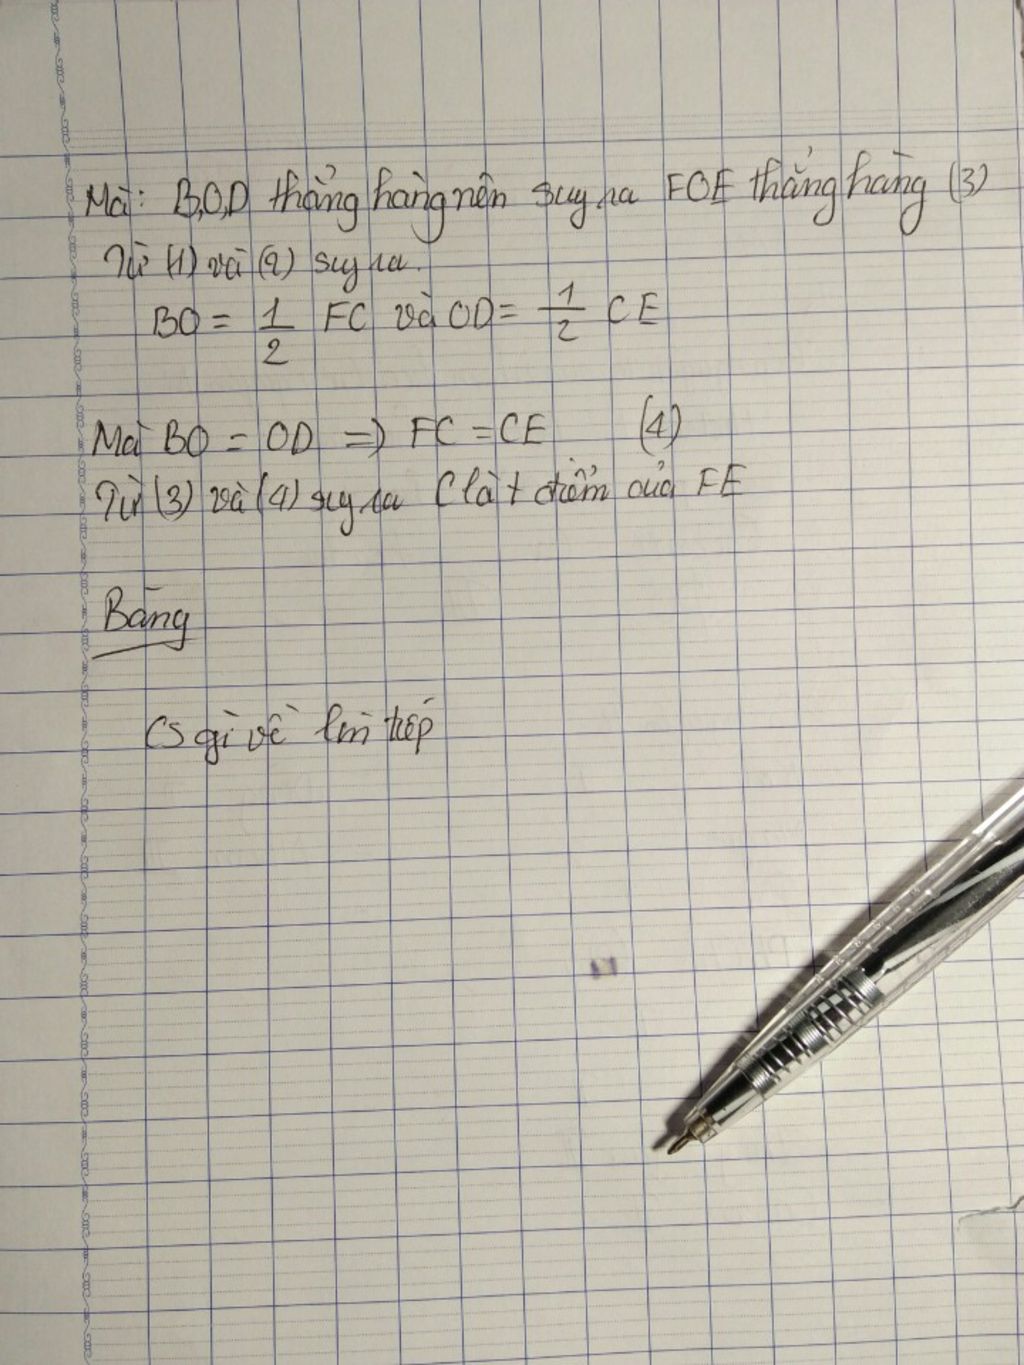 Mà: B,O,D thẳng hàng nên suy ra FOE thẳng hàng (3)
Từ (1) và (2) suy ra.
BO = 1/2 FC và OD = 1/2 CE
Mà BO = OD => FC = CE (4)
Từ (3) và (4) suy ra C là t điểm của FE
Bằng
CS gì về tiếp